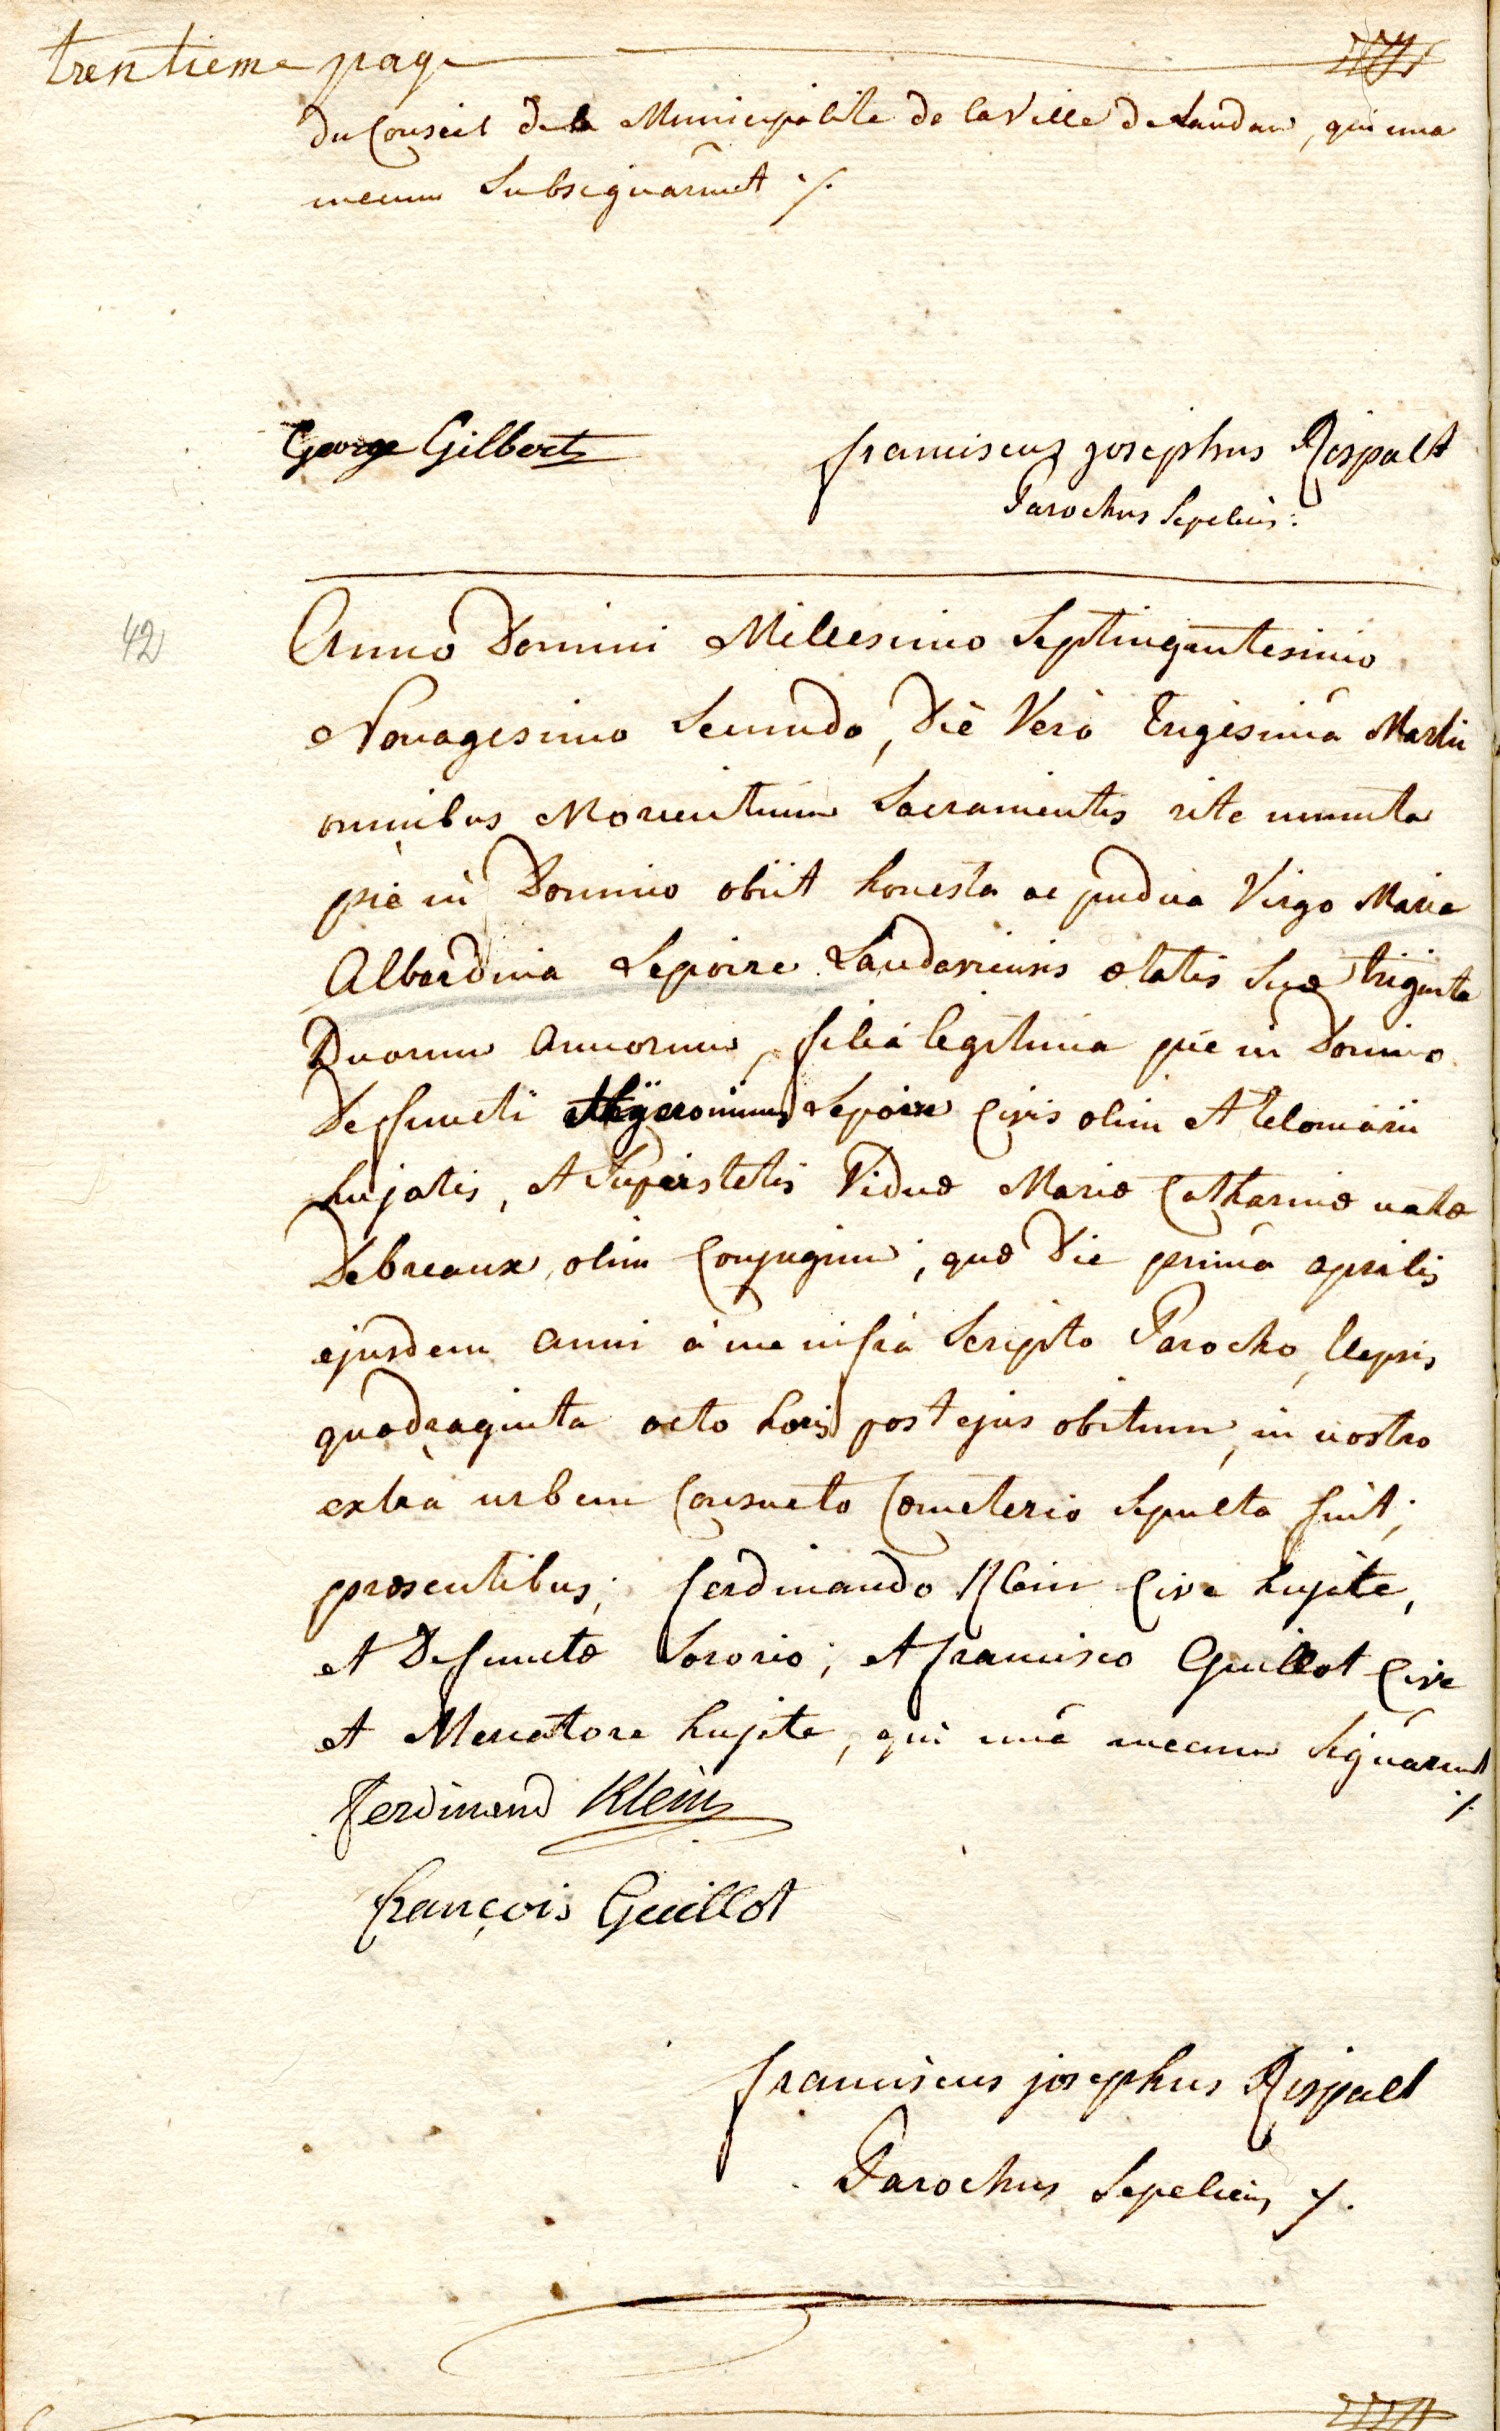 trentieme page
du Conseil de la Municipalite de la Ville de Landau, qui una
mecum Subsignarunt ./.
George Gilbert
franciscus josephus Rispalt
Parochus Sepeliens:
42
Anno Domini Millesimo Septingentesimo
Nonagesimo Secundo, Die Verò Trigesimâ Martii
omnibus Morientium Sacramentis rite munita
piè in Domino obiit honesta ac pudica Virgo Maria
Lepoire Landaviensis ætatis Suæ triginta
Duorum annorum, filia legitima piè in Domino
Deffuncti Lepoire Civis olim et telonarii
hujatis, et Superstetis Viduæ Mariæ Catharinæ natæ
Debreaux, olim Conjugum; quæ Die primâ aprilis
ejusdem anni à me infrà Scripto Parocho, Elapsis
quadraginta octo horis post ejus obitum, in nostro
extrà urbem Consueto Cœmeterio Sepulta fuit;
præsentibus; ferdinando Klein Cive hujate,
et Defunctæ Sororio; et francisco Guillot Cive
et Mercatore hujate, qui unâ mecum Signarunt
./.
Ferdinand Klein
françois Guillot
franciscus josephus Rispalt
Parochus Sepeliens ./.